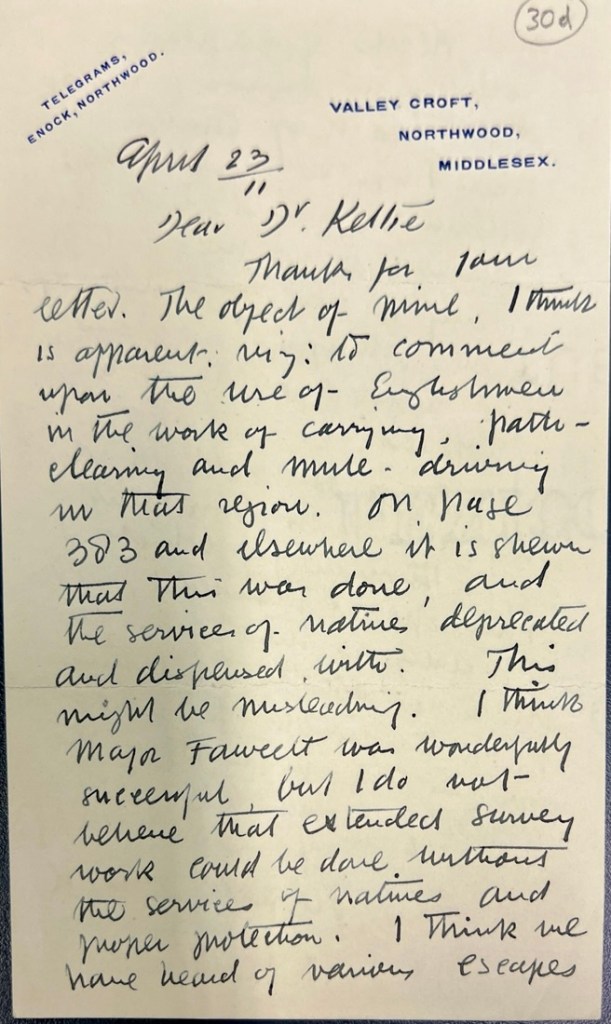 30d
TELEGRAMS,
ENOCK, NORTHWOOD.
VALLEY CROFT,
NORTHWOOD,
MIDDLESEX.
April 23
11
Dear Dr. Keltie
Thanks for your
letter. The object of mine, I think
is apparent: viz: to comment
upon the use of Englishmen
in the work of carrying, path-
clearing and mule-driving
in that region. On page
383 and elsewhere it is shewn
that this was done, and
the services of natives deprecated
and dispensed with. This
might be misleading. I think
Major Fawcett was wonderfully
successful, but I do not
believe that extended survey
work could be done without
the services of natives and
proper protection. I think we
have heard of various escapes